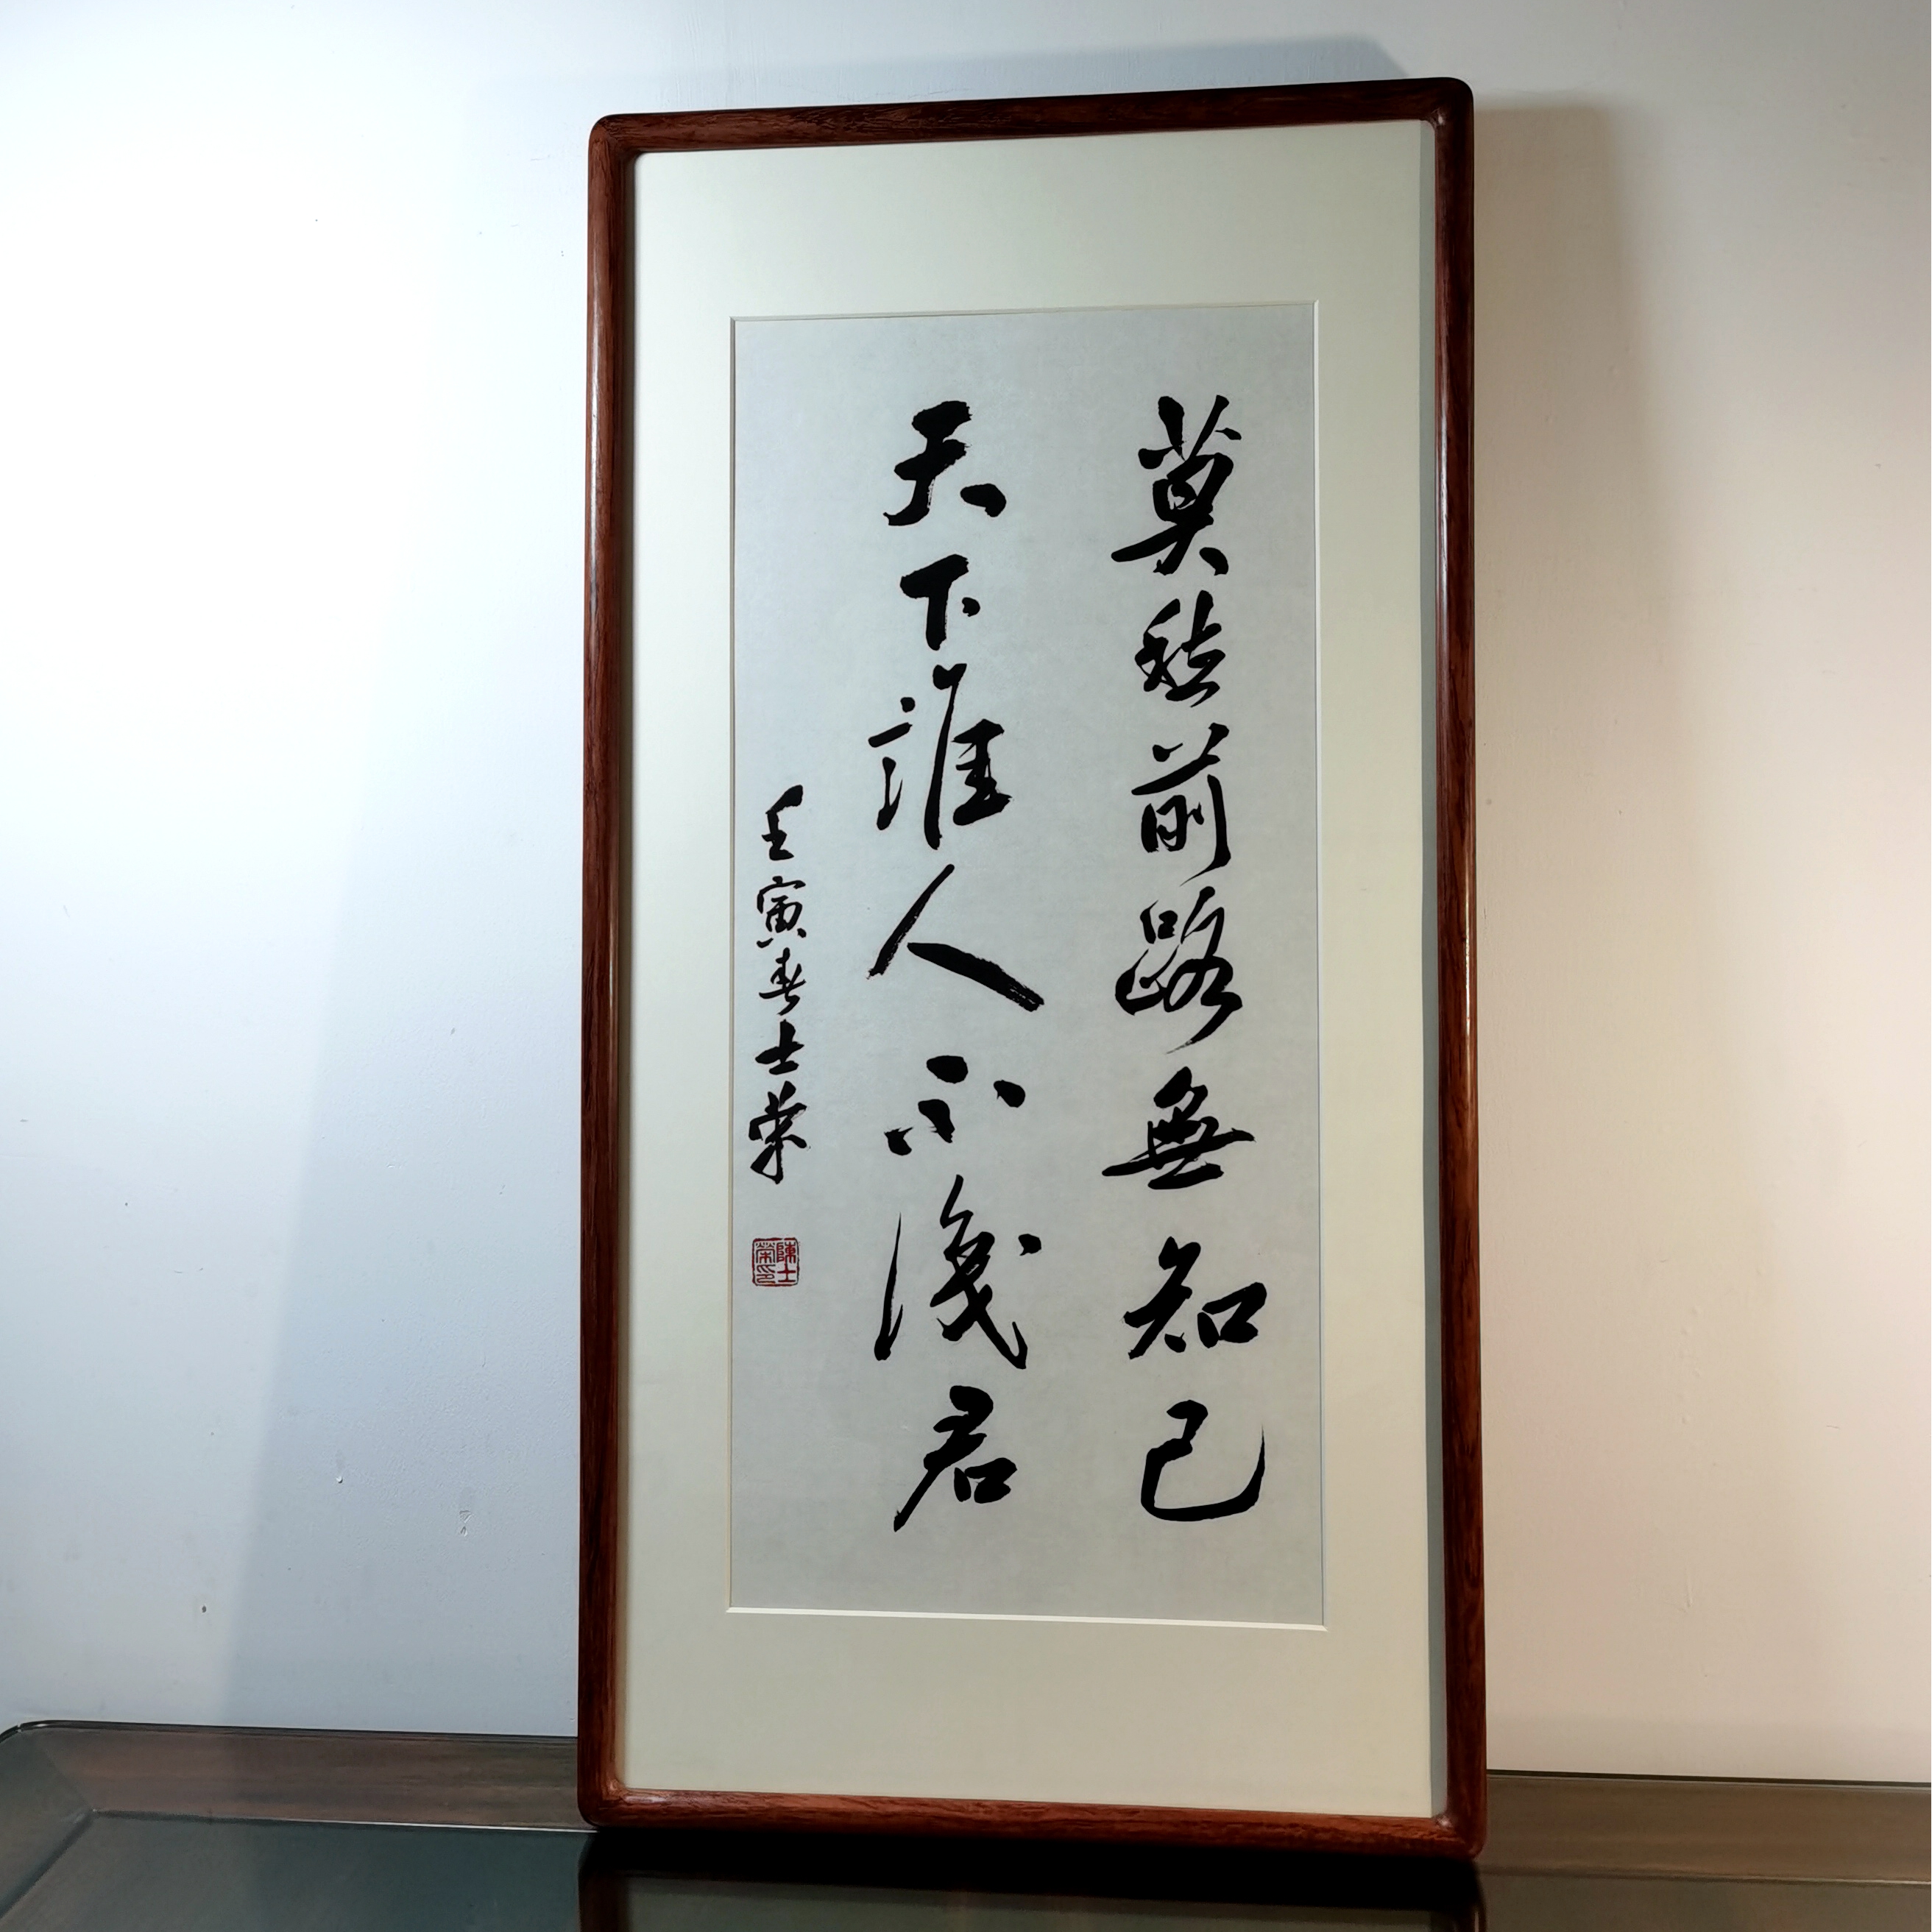 莫愁前路無知己
天下誰人不識君
壬寅春士榮
陳士榮印